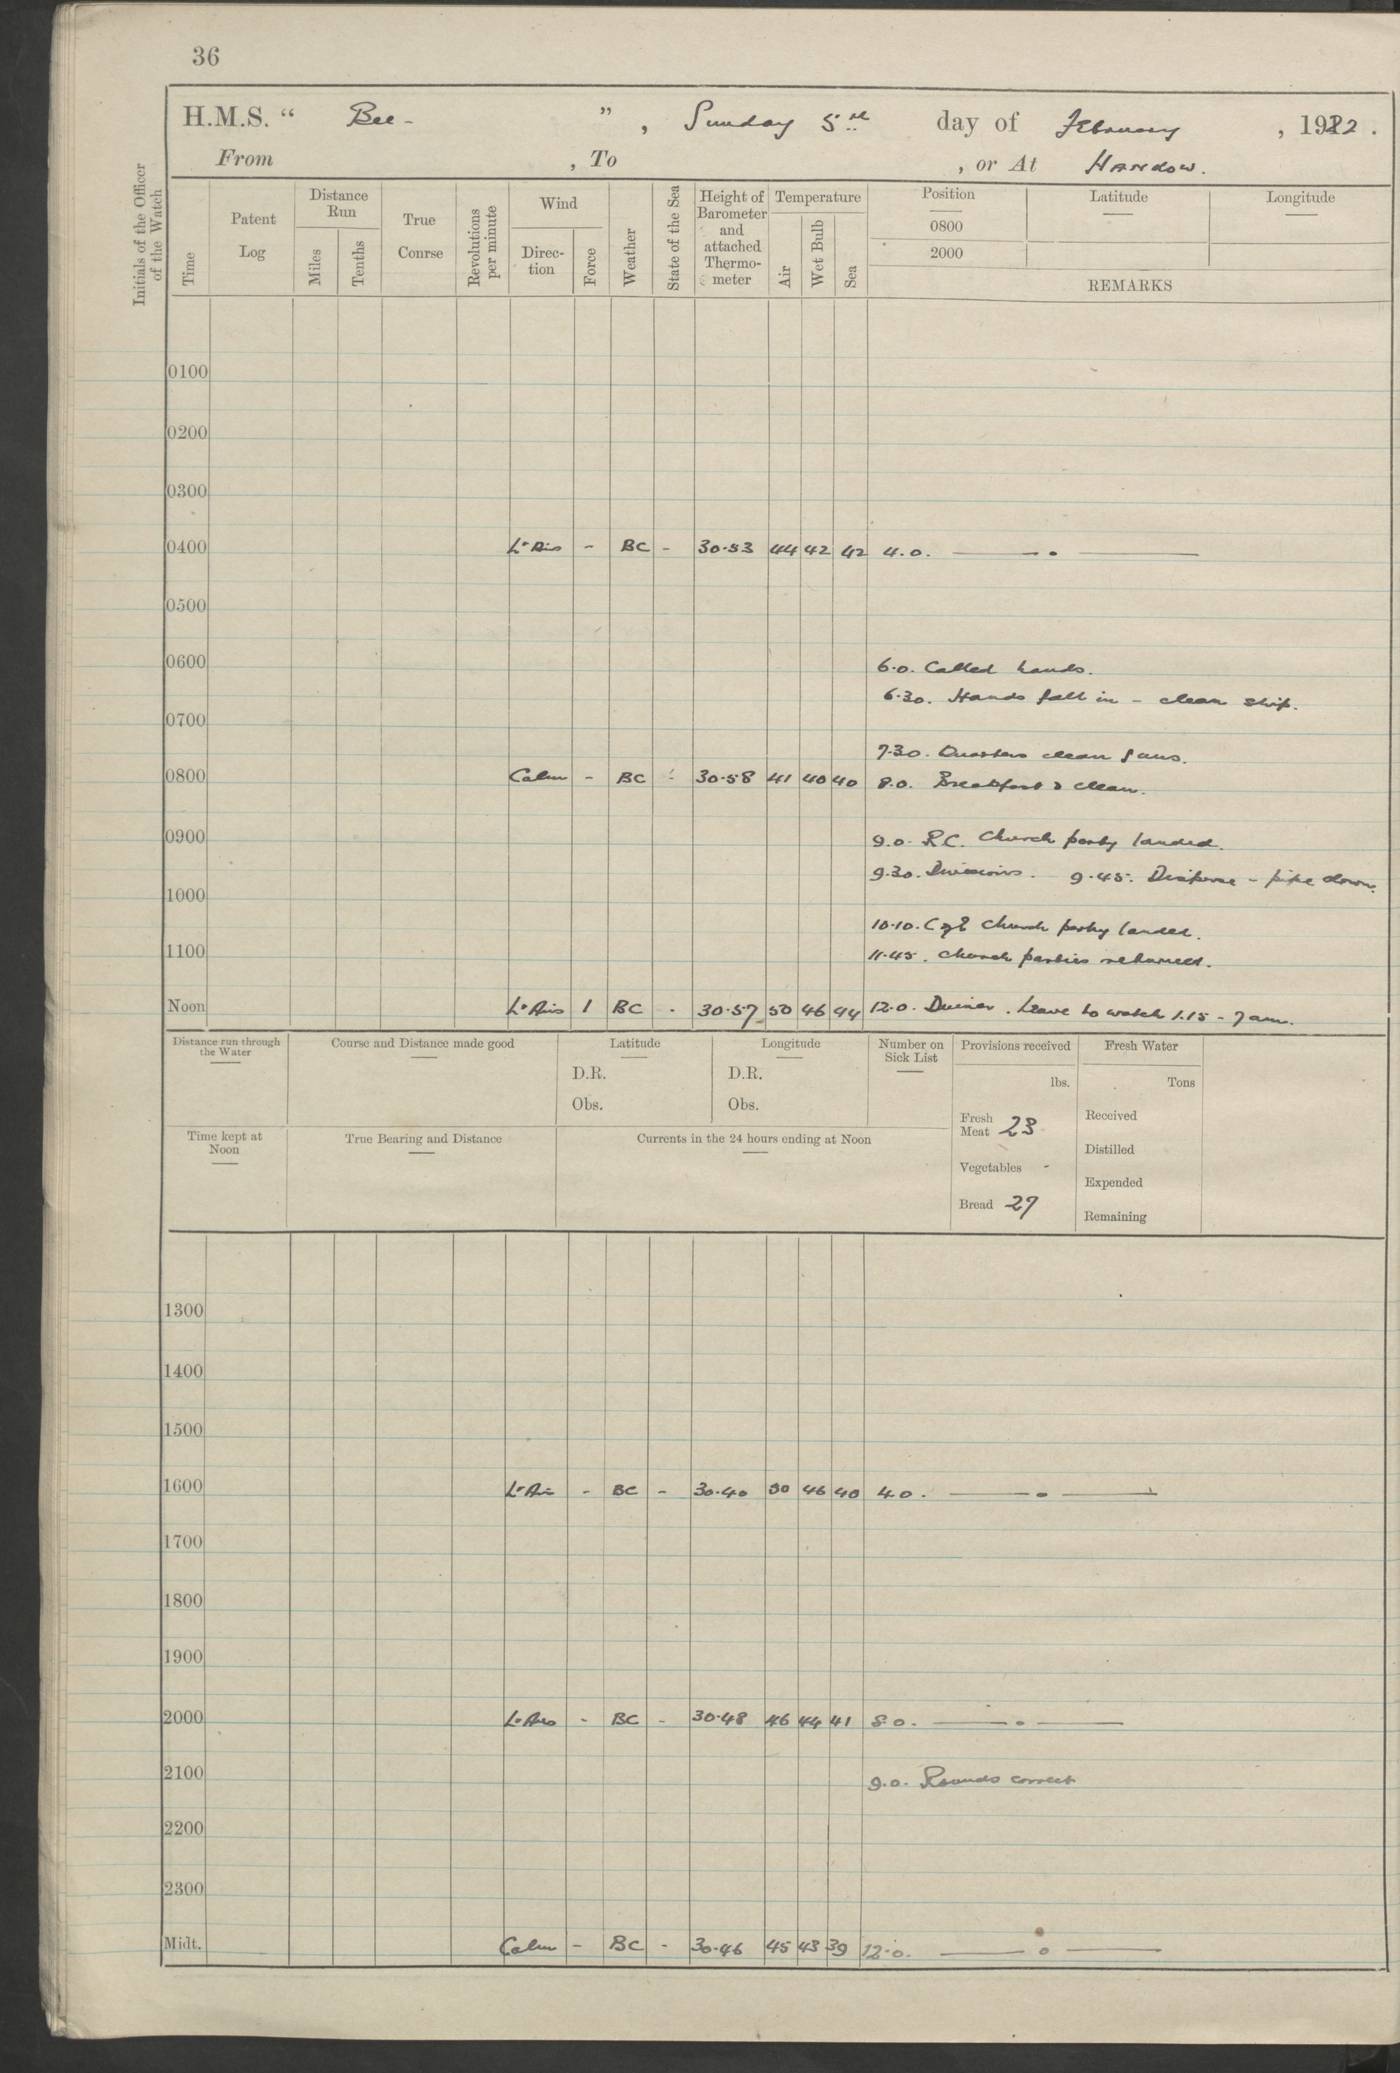 36
H.M.S. “ Bee - ” , Sunday 5th day of February , 1922 .
From , To , or At Hankow.
Initials of the Officer of the Watch
Time
Patent Log
Distance Run
Miles
Tenths
True Course
Revolutions per minute
Wind
Direction
Force
Weather
State of the Sea
Height of Barometer and attached Thermometer
Temperature
Air
Wet Bulb
Sea
Position
0800
2000
Latitude
Longitude
REMARKS
0100
0200
0300
0400 Lt Airs - BC - 30.53 44 42 42 4.0. — . —
0500
0600 6.0. Called hands.
6.30. Hands fall in - clean ship.
0700
7.30. Quarters clean guns.
0800 Calm - BC - 30.58 41 40 40 8.0. Breakfast & clean.
0900 9.0. R.C. Church party landed.
9.30. Divisions. 9.45. Disperse - pipe down.
1000
10.10. C of E Church party landed.
1100 11.45. Church parties returned.
Noon Lt Airs 1 BC - 30.57 50 46 44 12.0. Dinner. Leave to watch 1.15 - 7 am.
Distance run through the Water
Course and Distance made good
Latitude
D.R.
Obs.
Longitude
D.R.
Obs.
Number on Sick List
Provisions received
lbs.
Fresh Meat 23
Vegetables -
Bread 27
Fresh Water
Tons
Received
Distilled
Expended
Remaining
Time kept at Noon
True Bearing and Distance
Currents in the 24 hours ending at Noon
1300
1400
1500
1600 Lt Air - BC - 30.40 50 46 40 4.0. — . —
1700
1800
1900
2000 Lt Airs - BC - 30.48 46 44 41 8.0. — . —
2100 9.0. Rounds correct
2200
2300
Midt. Calm - BC - 30.46 45 43 39 12.0. — . —